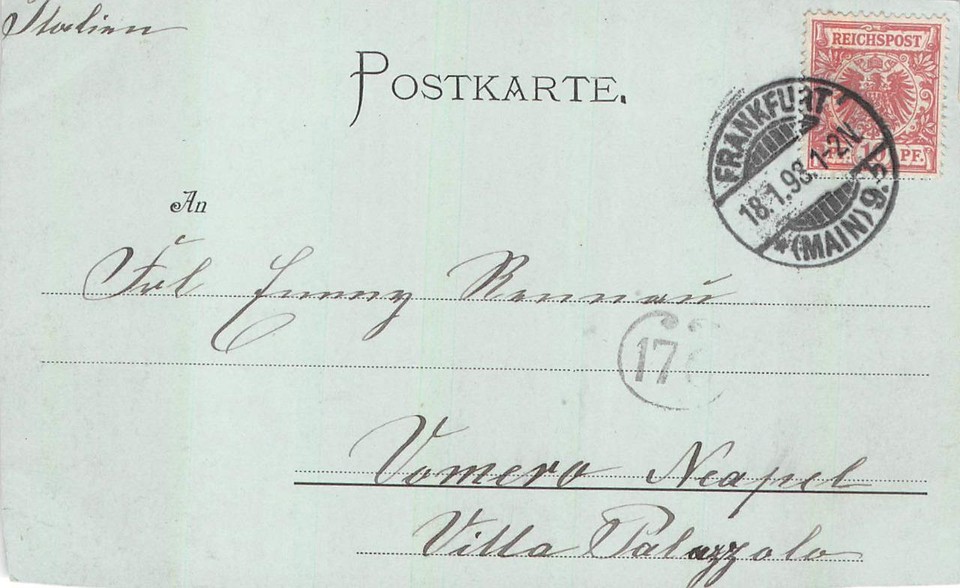 Italien
POSTKARTE.
REICHSPOST
10 PF.
FRANKFURT
18.1.98.1-2N
*(MAIN) 9.
An
Frl Emmy
Vomero Neapel
Villa Palazzolo
17